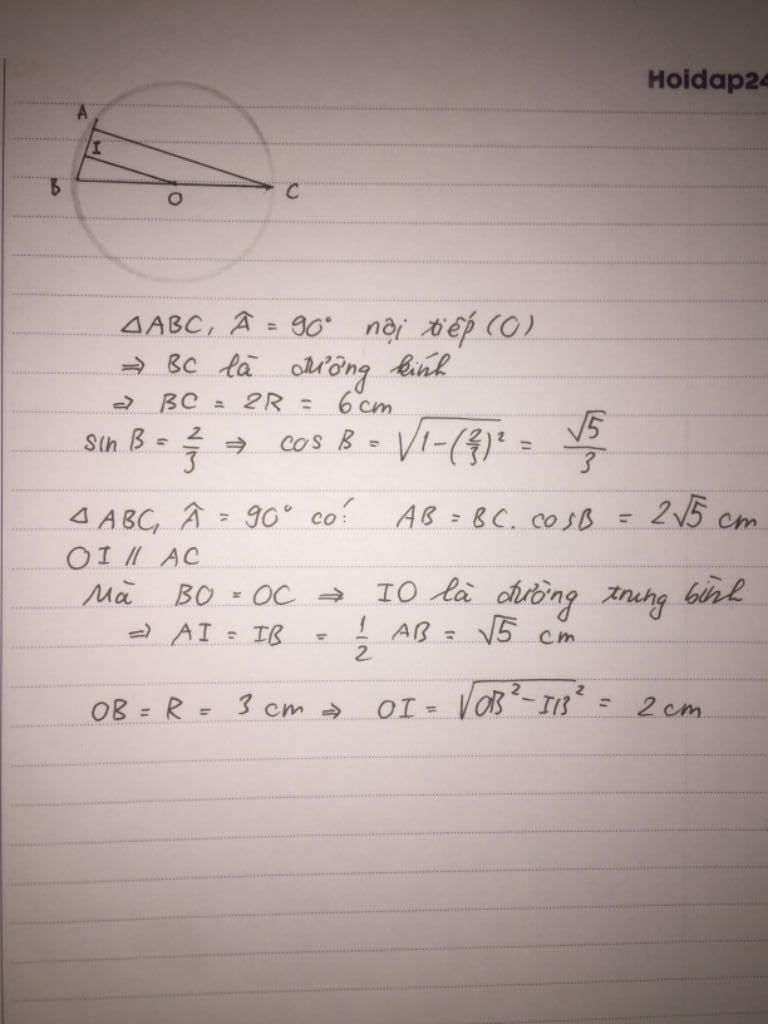 Hoidap24
A
I
B
O
C
△ABC, Â = 90° nội tiếp (O)
⇒ BC là đường kính
⇒ BC = 2R = 6cm
sin B = 2/3 ⇒ cos B = √(1-(2/3)²) = √5/3
△ ABC, Â = 90° có: AB = BC. cosB = 2√5 cm
OI // AC
Mà BO = OC ⇒ IO là đường trung bình
⇒ AI = IB = 1/2 AB = √5 cm
OB = R = 3 cm ⇒ OI = √(OB² - IB²) = 2 cm